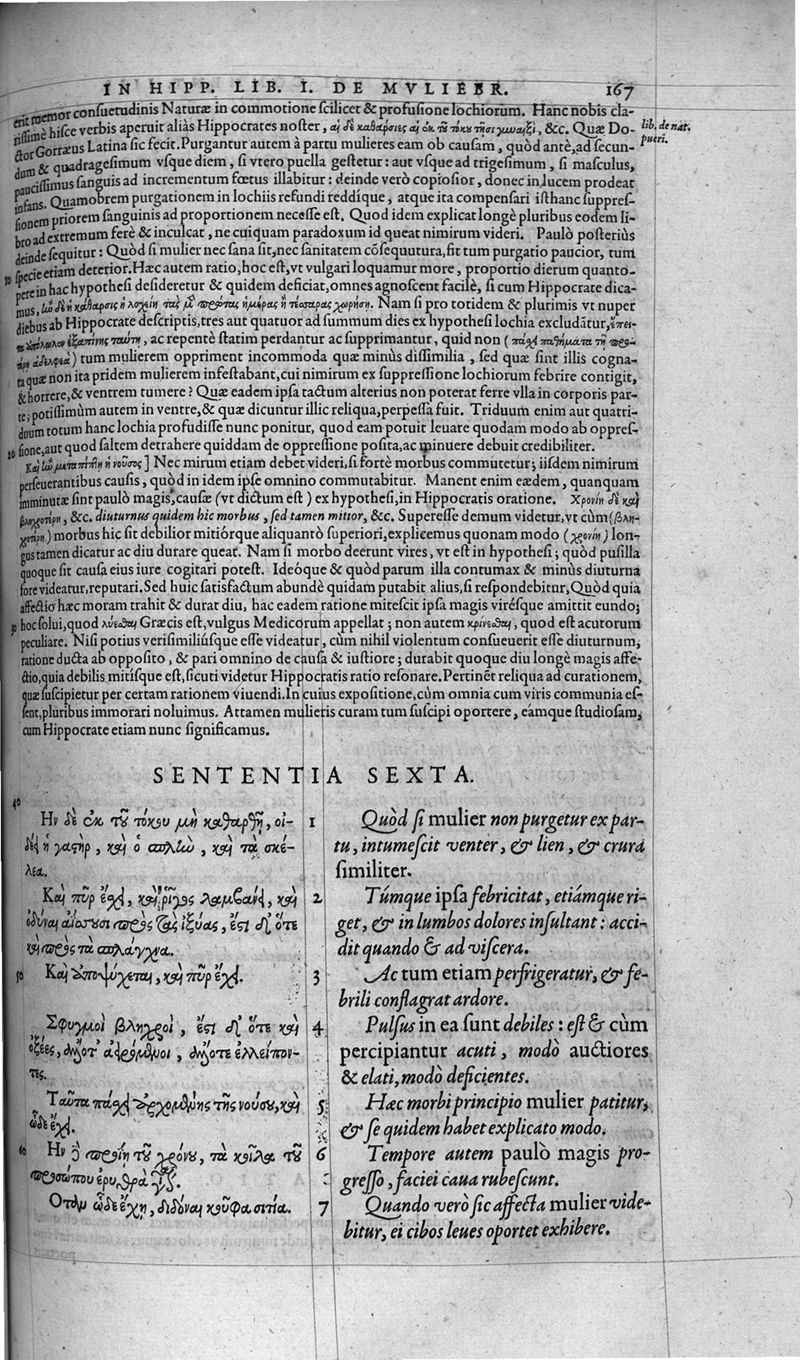 IN HIPP. LIB. I. DE MVLIEBR. 167
erit memor consuetudinis Naturæ in commotione scilicet & profusione lochiorum. Hanc nobis cla-
rissimè hisce verbis aperuit aliàs Hippocrates noster, &c. Quæ Do- lib. de nat.
ctor Gorræus Latina sic fecit. Purgantur autem à partu mulieres eam ob causam, quòd antè, ad secun- pueri.
dum & quadragesimum vsque diem, si vtero puella gestetur: aut vsque ad trigesimum, si masculus,
paucissimus sanguis ad incrementum fœtus illabitur: deinde verò copiosior, donec in lucem prodeat
infans. Quamobrem purgationem in lochiis refundi reddíque, atque ita compensari isthanc suppres-
sionem priorem sanguinis ad proportionem necesse est. Quod idem explicat longè pluribus eodem li-
bro ad extremum ferè & inculcat, ne cuiquam paradoxum id queat nimirum videri. Paulò posteriùs
deinde sequitur: Quòd si mulier nec sana sit, nec sanitatem cõsequutura, fit tum purgatio paucior, tum
specie etiam deterior. Hæc autem ratio, hoc est, vt vulgari loquamur more, proportio dierum quanto-
pere in hac hypothesi desideretur & quidem deficiat, omnes agnoscent facilè, si cum Hippocrate dica-
mus, Nam si pro totidem & plurimis vt nuper
diebus ab Hippocrate descriptis, tres aut quatuor ad summum dies ex hypothesi lochia excludãtur,
ac repentè statim perdantur ac supprimantur, quid non (
) tum mulierem oppriment incommoda quæ minùs dissimilia, sed quæ sint illis cogna-
ta quæ non ita pridem mulierem infestabant, cui nimirum ex suppressione lochiorum febrire contigit,
& horrere, & ventrem tumere? Quæ eadem ipsa tactum alterius non poterat ferre vlla in corporis par-
te; potissimùm autem in ventre, & quæ dicuntur illic reliqua, perpessa fuit. Triduum enim aut quatri-
duum totum hanc lochia profudisse nunc ponitur, quod eam potuit leuare quodam modo ab oppres-
sione, aut quod saltem detrahere quiddam de oppressione posita, ac minuere debuit credibiliter.
Καὶ ἢν μεταπίπτῃ ἡ νοῦσος] Nec mirum etiam debet videri, si fortè morbus commutetur; iisdem nimirum
perseuerantibus causis, quòd in idem ipse omnino commutabitur. Manent enim eædem, quanquam
imminutæ sint paulò magis, causæ (vt dictum est) ex hypothesi, in Hippocratis oratione. Χρονίη δὲ καὶ
βληχροτέρη, &c. diuturnus quidem hic morbus, sed tamen mitior, &c. Superesse demum videtur, vt cùm (βλη-
χροτέρη) morbus hic sit debilior mitiórque aliquantò superiori, explicemus quonam modo (χρονίη) lon-
gus tamen dicatur ac diu durare queat. Nam si morbo deerunt vires, vt est in hypothesi; quòd pusilla
quoque sit causa eius iure cogitari potest. Ideóque & quòd parum illa contumax & minùs diuturna
fore videatur, reputari. Sed huic satisfactum abundè quidam putabit alius, si respondebitur, Quòd quia
affectio hæc moram trahit & durat diu, hac eadem ratione mitescit ipsa magis virésque amittit eundo;
hoc solui, quod λύεσθαι Græcis est, vulgus Medicorum appellat; non autem κρίνεσθαι, quod est acutorum
peculiare. Nisi potius verisimiliúsque esse videatur, cùm nihil violentum consueuerit esse diuturnum,
ratione ducta ab opposito, & pari omnino de causa & iustiore; durabit quoque diu longè magis affe-
ctio, quia debilis mitísque est, sicuti videtur Hippocratis ratio resonare. Pertinẽt reliqua ad curationem,
quæ suscipietur per certam rationem viuendi. In cuius expositione, cùm omnia cum viris communia es-
sent, pluribus immorari noluimus. Attamen mulieris curam tum suscipi oportere, eámque studiosam,
cum Hippocrate etiam nunc significamus.
SENTENTIA SEXTA.
40
Ην δὲ ἐκ τοῦ τόκου μὴ καθαρθῇ, οἰ-
δεῖ ἡ γαστὴρ, καὶ ὁ σπλὼ, καὶ τὰ σκέ-
λεα.
Καὶ πῦρ ἔχει, καὶ ῥῖγος λαμβάνει, καὶ
ὀδύναι ἀΐσσουσι πρὸς τὰς ἰξύας, ἔστι δ' ὅτε
καὶ πρὸς τὰ σπλάγχνα.
50 Καὶ ἀποψύχεται, καὶ πῦρ ἔχει.
Σφυγμοὶ βληχροὶ, ἔστι δ' ὅτε καὶ
ὀξέες, ἄλλοτ' ἀειρόμενοι, ἄλλοτε ἐλλείπον-
τες.
Ταῦτα πάσχει ἀρχομένης τῆς νούσου, καὶ
ὧδε ἔχει.
60 Ην ὁ προσίῃ τοῦ χρόνου, τὰ κοῖλα τοῦ
προσώπου ἐρυθρὰ ἴσχει.
Οταν ὧδε ἔχῃ, διδόναι κοῦφα σιτία.
1 Quòd si mulier non purgetur ex par-
tu, intumescit venter, & lien, & crura
similiter.
2 Túmque ipsa febricitat, etiámque ri-
get, & in lumbos dolores insultant: acci-
dit quando & ad viscera.
3 Ac tum etiam perfrigeratur, & fe-
brili conflagrat ardore.
4 Pulsus in ea sunt debiles: est & cùm
percipiantur acuti, modò auctiores
& elati, modò deficientes.
5 Hæc morbi principio mulier patitur,
& se quidem habet explicato modo.
6 Tempore autem paulò magis pro-
gresso, faciei caua rubescunt.
7 Quando verò sic affecta mulier vide-
bitur, ei cibos leues oportet exhibere.